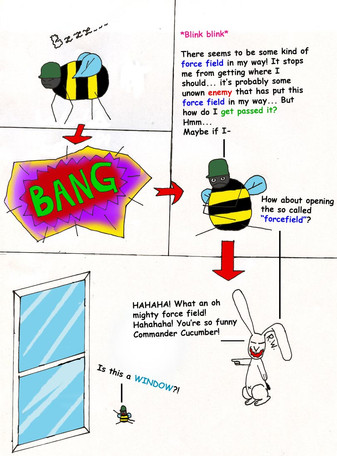 Bzzz...
BANG
*Blink blink*
There seems to be some kind of
force field in my way! It stops
me from getting where I
should... it's probably some
unown enemy that has put this
force field in my way... But
how do I get passed it?
Hmm...
Maybe if I-
How about opening
the so called
"forcefield"?
HAHAHA! What an oh
mighty force field!
Hahahaha! You're so funny
Commander Cucumber!
R.W.
Is this a WINDOW?!